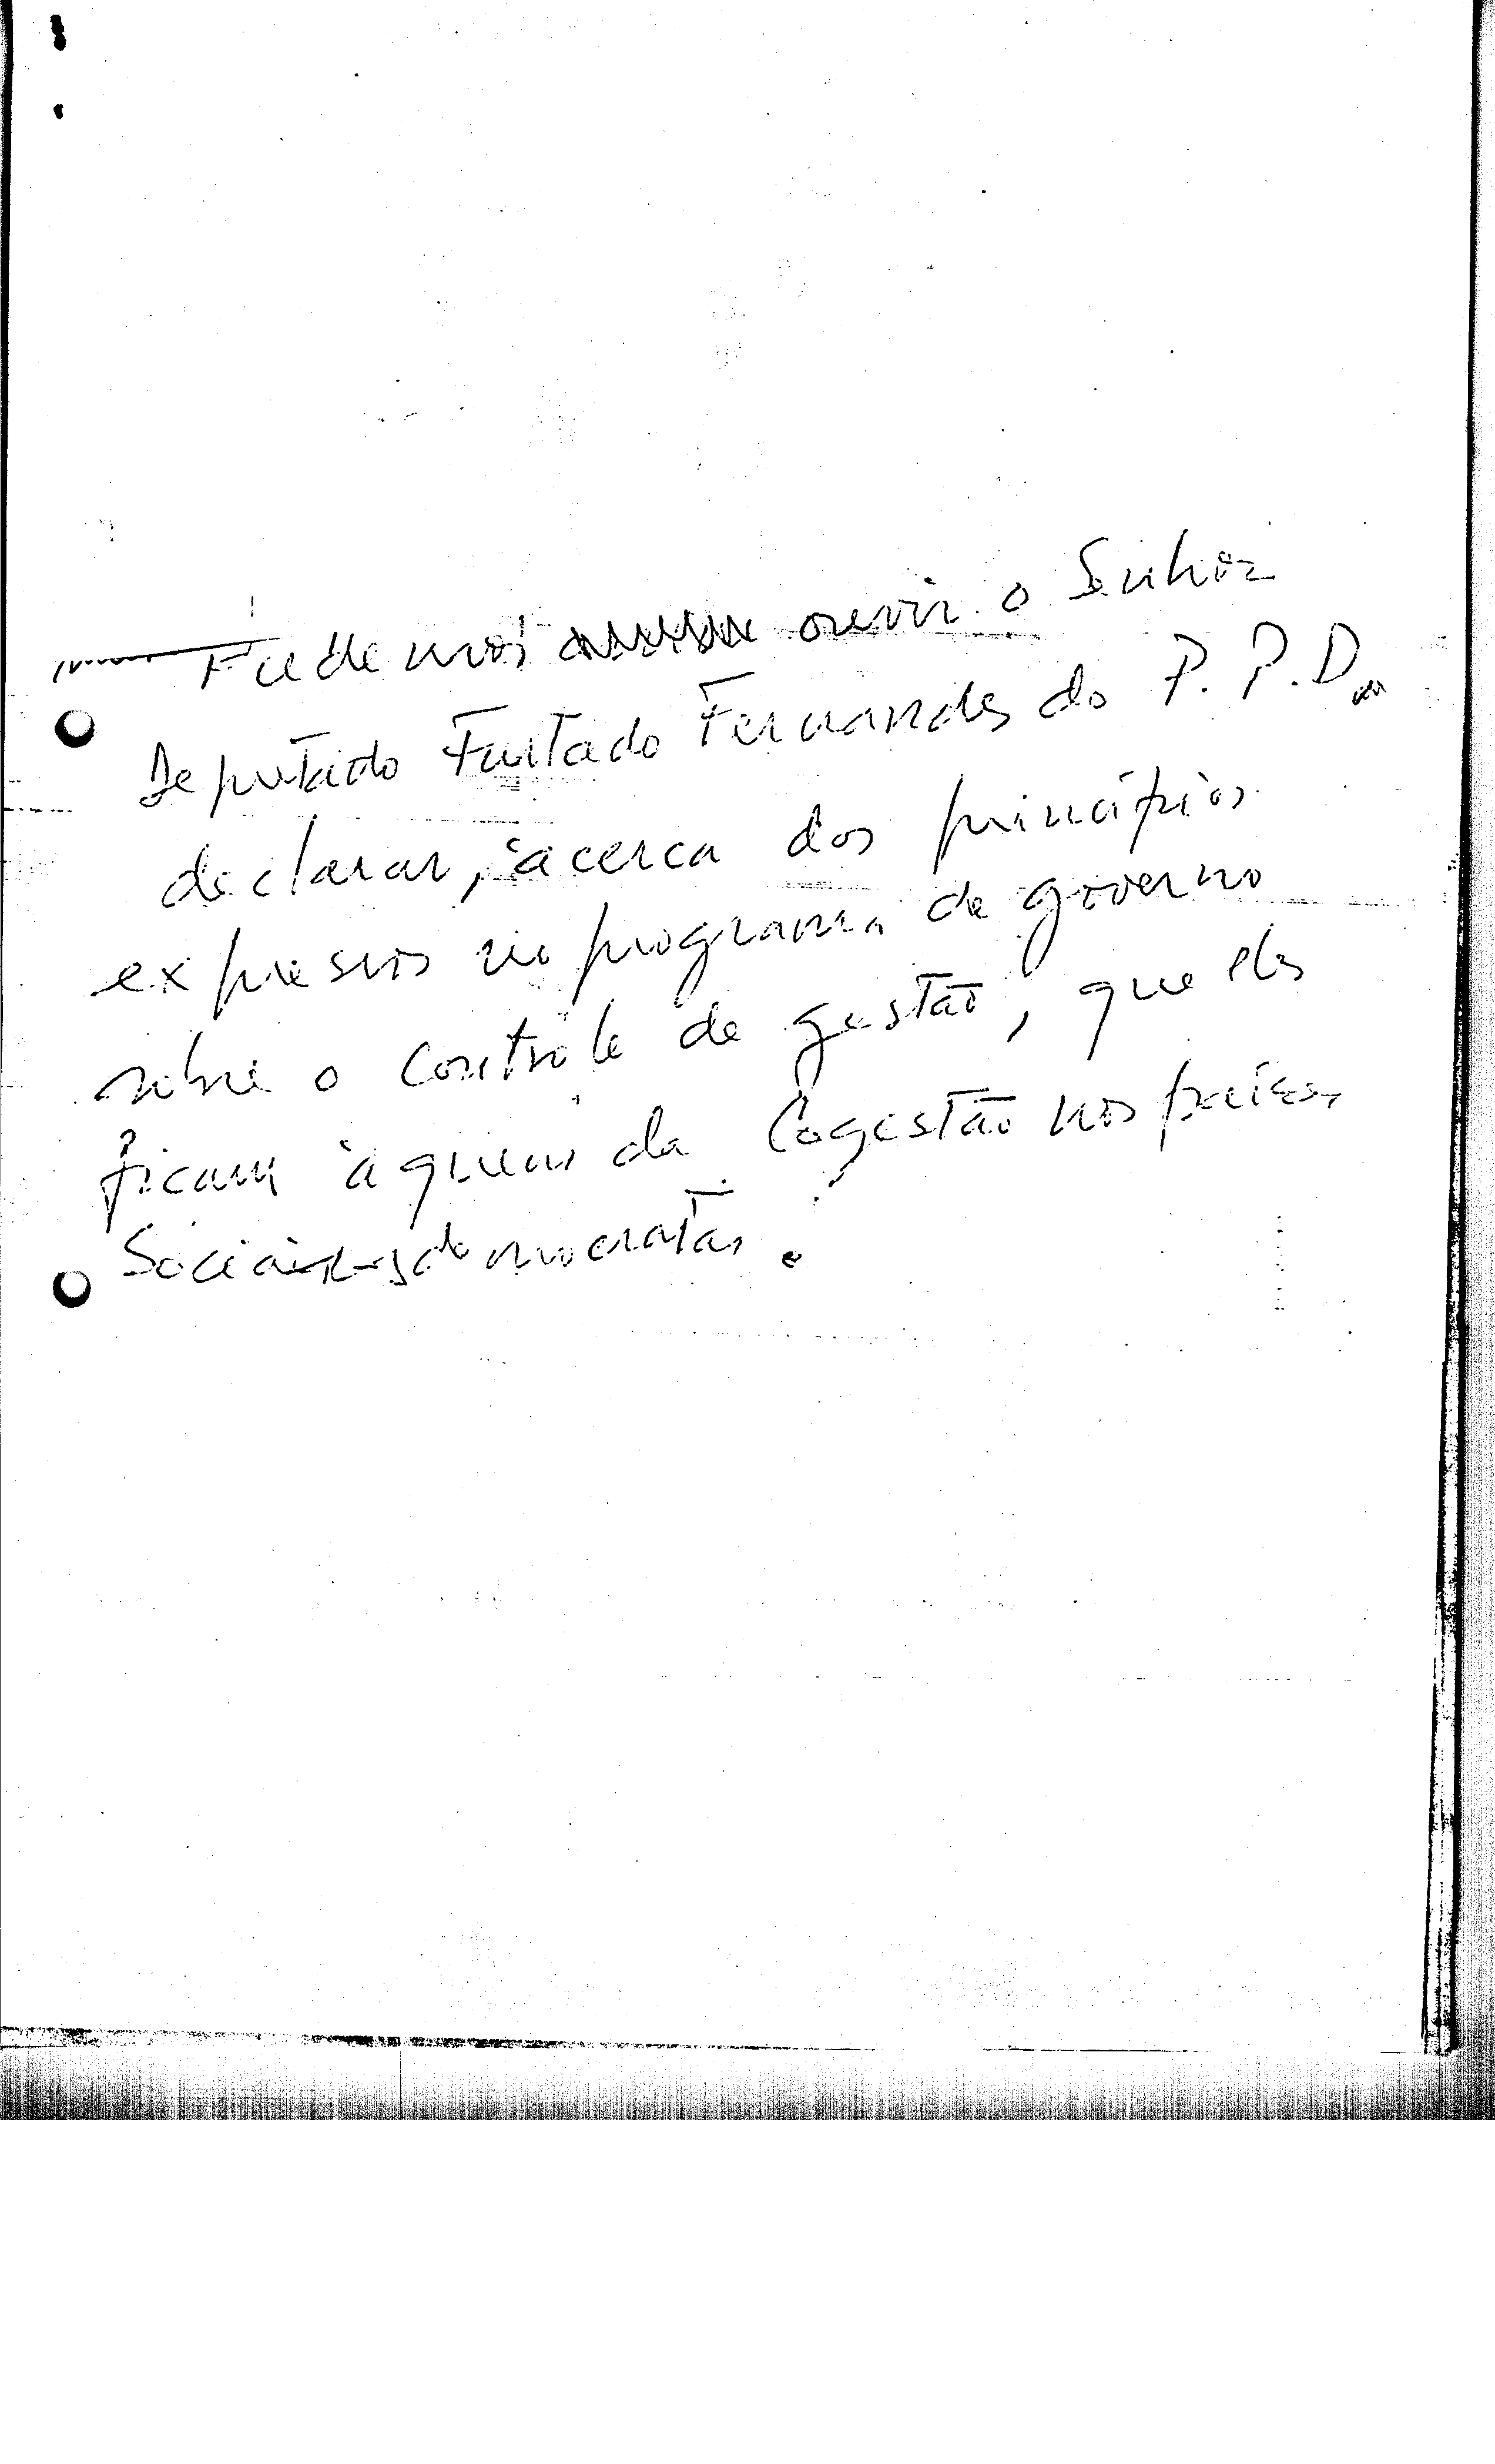 Pudemos ouvir o Senhor
Deputado Furtado Fernandes do P.P.D.
declarar, àcerca dos princípios
expressos no programa de governo
sobre o contrôle de gestão, que eles
ficam àquem da Cogestão nos países
Sociais-democratas.